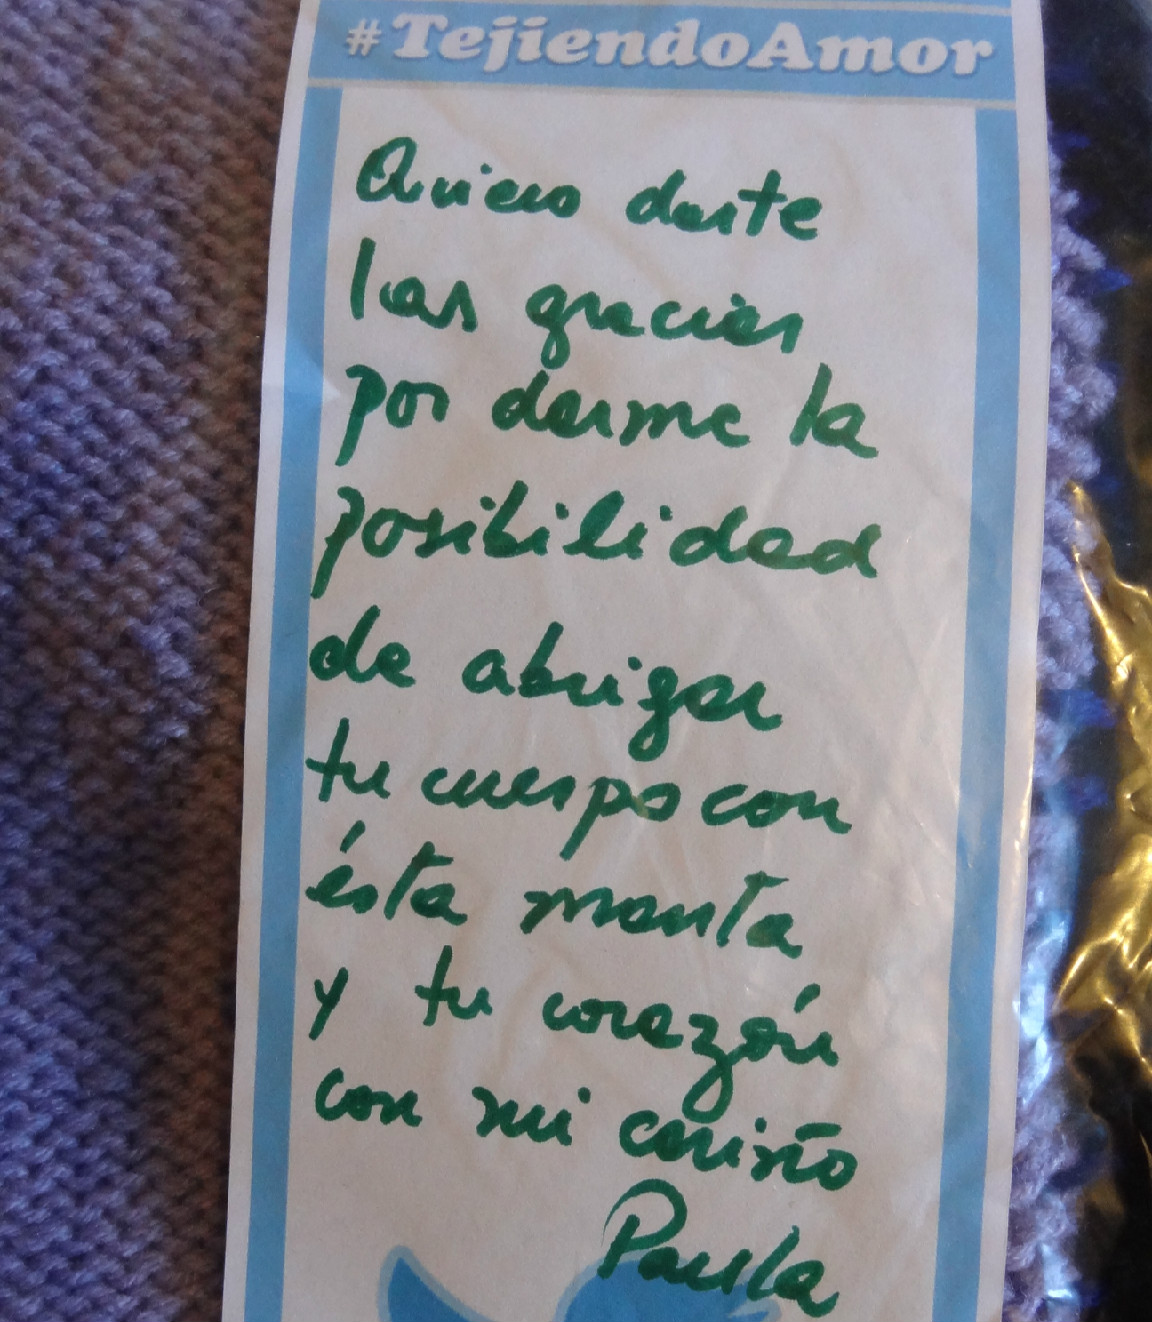 #TejiendoAmor
Quiero darte
las gracias
por darme la
posibilidad
de abrigar
tu cuerpo con
ésta manta
y tu corazón
con mi cariño
Paula